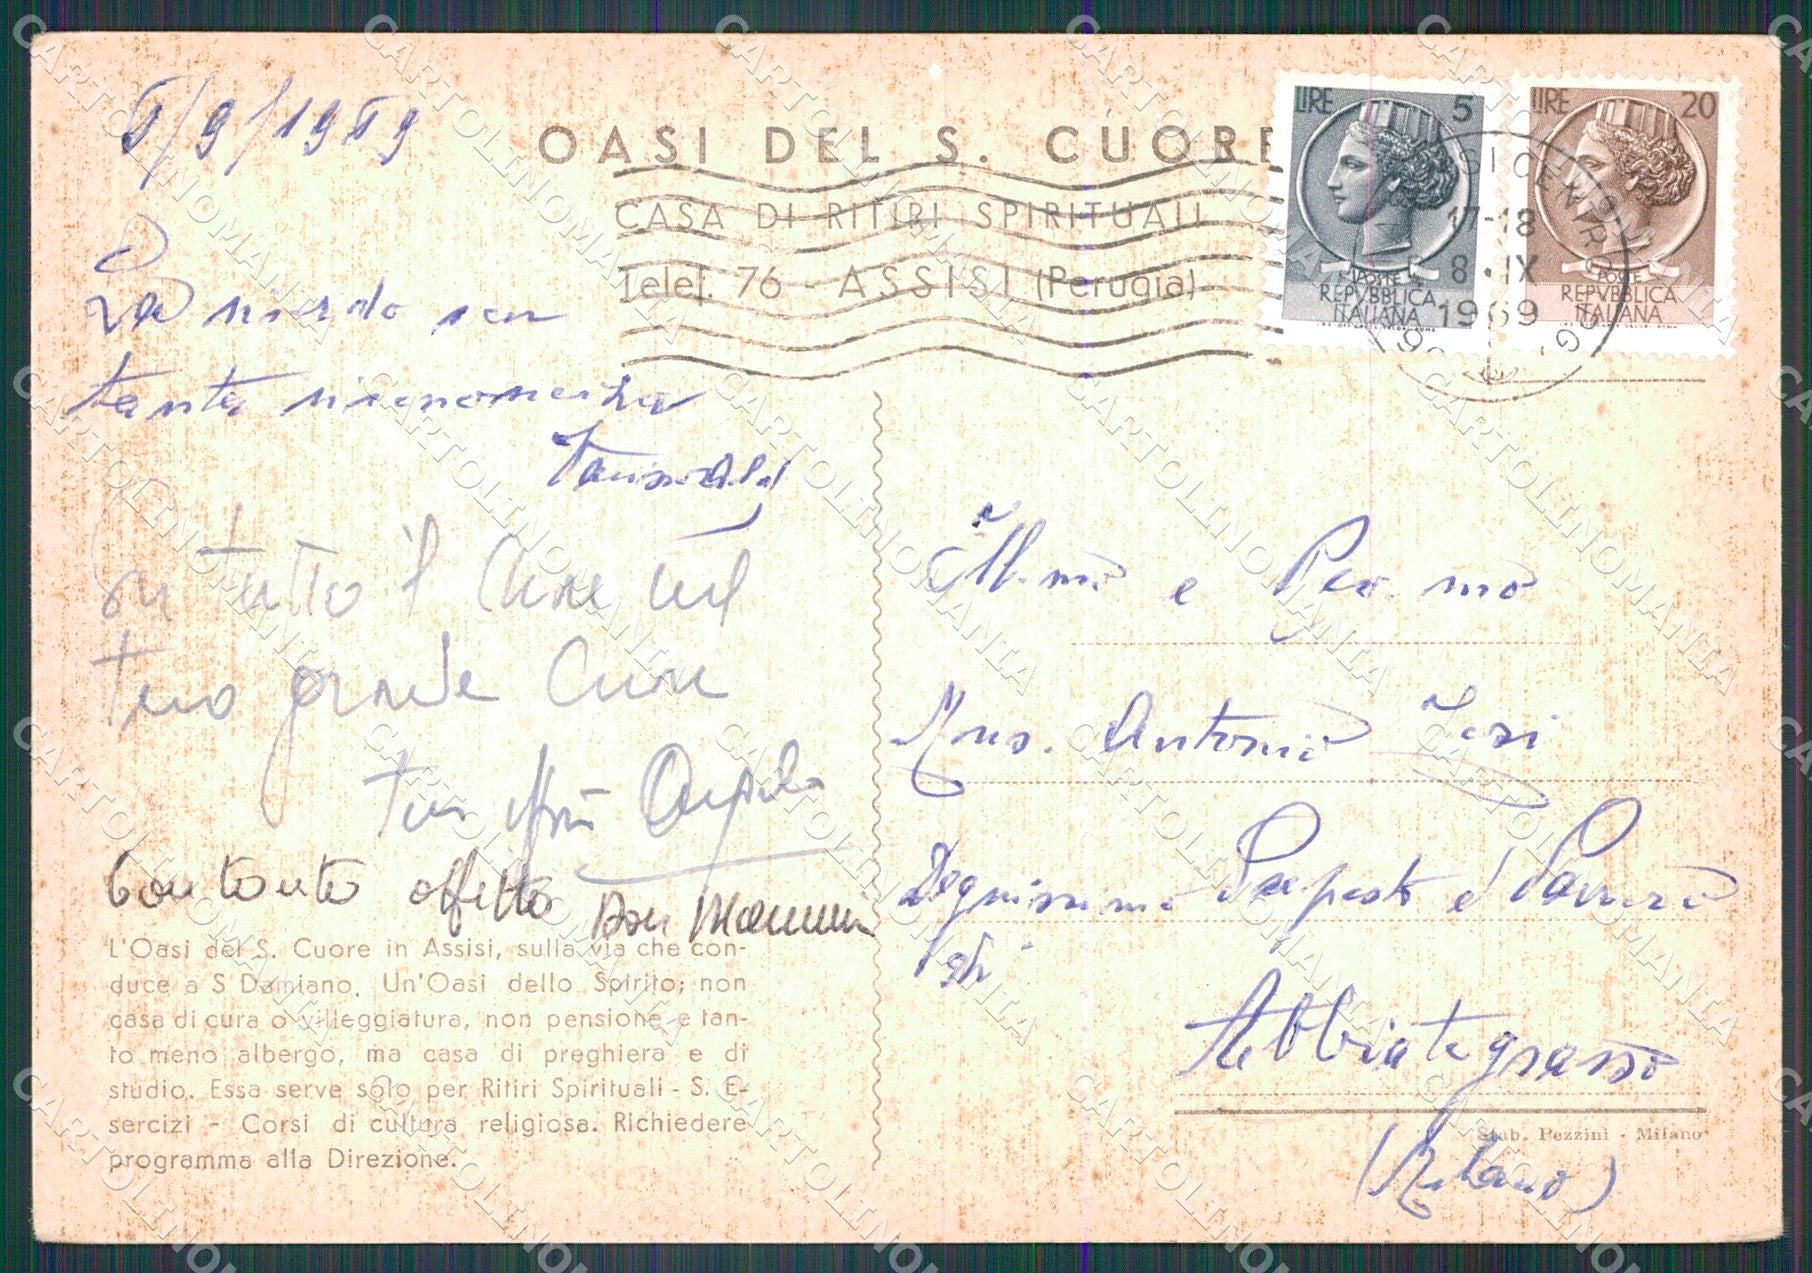 8/9/1969
OASI DEL S. CUORE
CASA DI RITIRI SPIRITUALI
Telef. 76 - ASSISI (Perugia)
LIRE 5
POSTE
REPVBBLICA
ITALIANA
LIRE 20
POSTE
REPVBBLICA
ITALIANA
17-18
8·IX
1969
La ricordo con
tanta riconoscenza
tutto il Cuore nel
tuo grande Cuore
tuo
Con tanto affetto Don
L'Oasi del S. Cuore in Assisi, sulla via che con-
duce a S Damiano. Un'Oasi dello Spirito; non
casa di cura o villeggiatura, non pensione e tan-
to meno albergo, ma casa di preghiera e di
studio. Essa serve solo per Ritiri Spirituali - S. E-
sercizi - Corsi di cultura religiosa. Richiedere
programma alla Direzione.
Ill.mo e Rev.mo
Mns. Antonio
Degnissimo Preposto e Parroco
di
Abbiategrasso
Stab. Pezzini - Milano
(Milano)
CARTOLINOMANIA